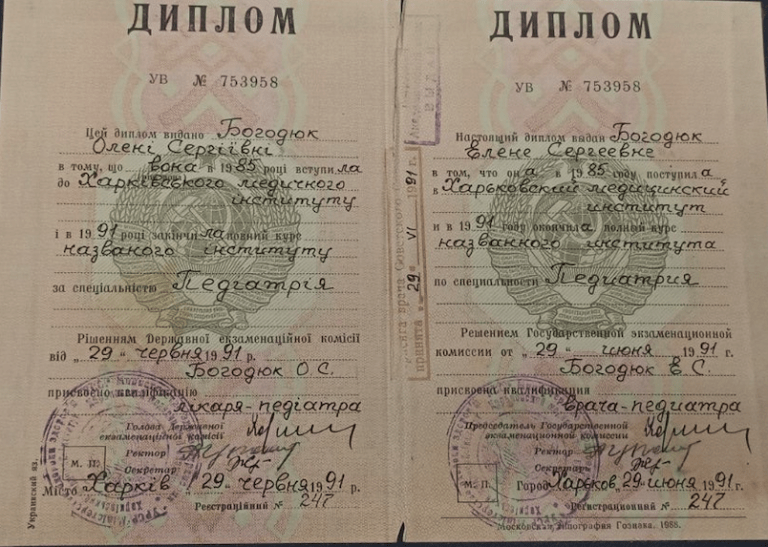 ДИПЛОМ
УВ № 753958
Цей диплом видано Богодюк
Олені Сергіївні
в тому, що вона в 1985 році вступила
до Харківського медичного
інституту
і в 1991 році закінчила повний курс
названого інституту
за спеціальністю Педіатрія
Рішенням Державної екзаменаційної комісії
від „29“ червня 1991 р.
Богодюк О.С.
присвоєно кваліфікацію
лікаря-педіатра
Голова Державної
екзаменаційної комісії
Ректор
Секретар
М. П.
Місто Харків „29“ червня 1991 р.
Реєстраційний № 247
Украинский яз.
принята „29“ VI 1991 г.
ДИПЛОМ
УВ № 753958
Настоящий диплом выдан Богодюк
Елене Сергеевне
в том, что она в 1985 году поступила
в Харьковский медицинский
институт
и в 1991 году окончила полный курс
названного института
по специальности Педиатрия
Решением Государственной экзаменационной
комиссии от „29“ июня 1991 г.
Богодюк Е.С.
присвоена квалификация
врача-педиатра
Председатель Государственной
экзаменационной комиссии
Ректор
Секретарь
М. П.
Город Харьков „29“ июня 1991 г.
Регистрационный № 247
Московская типография Гознака. 1988.